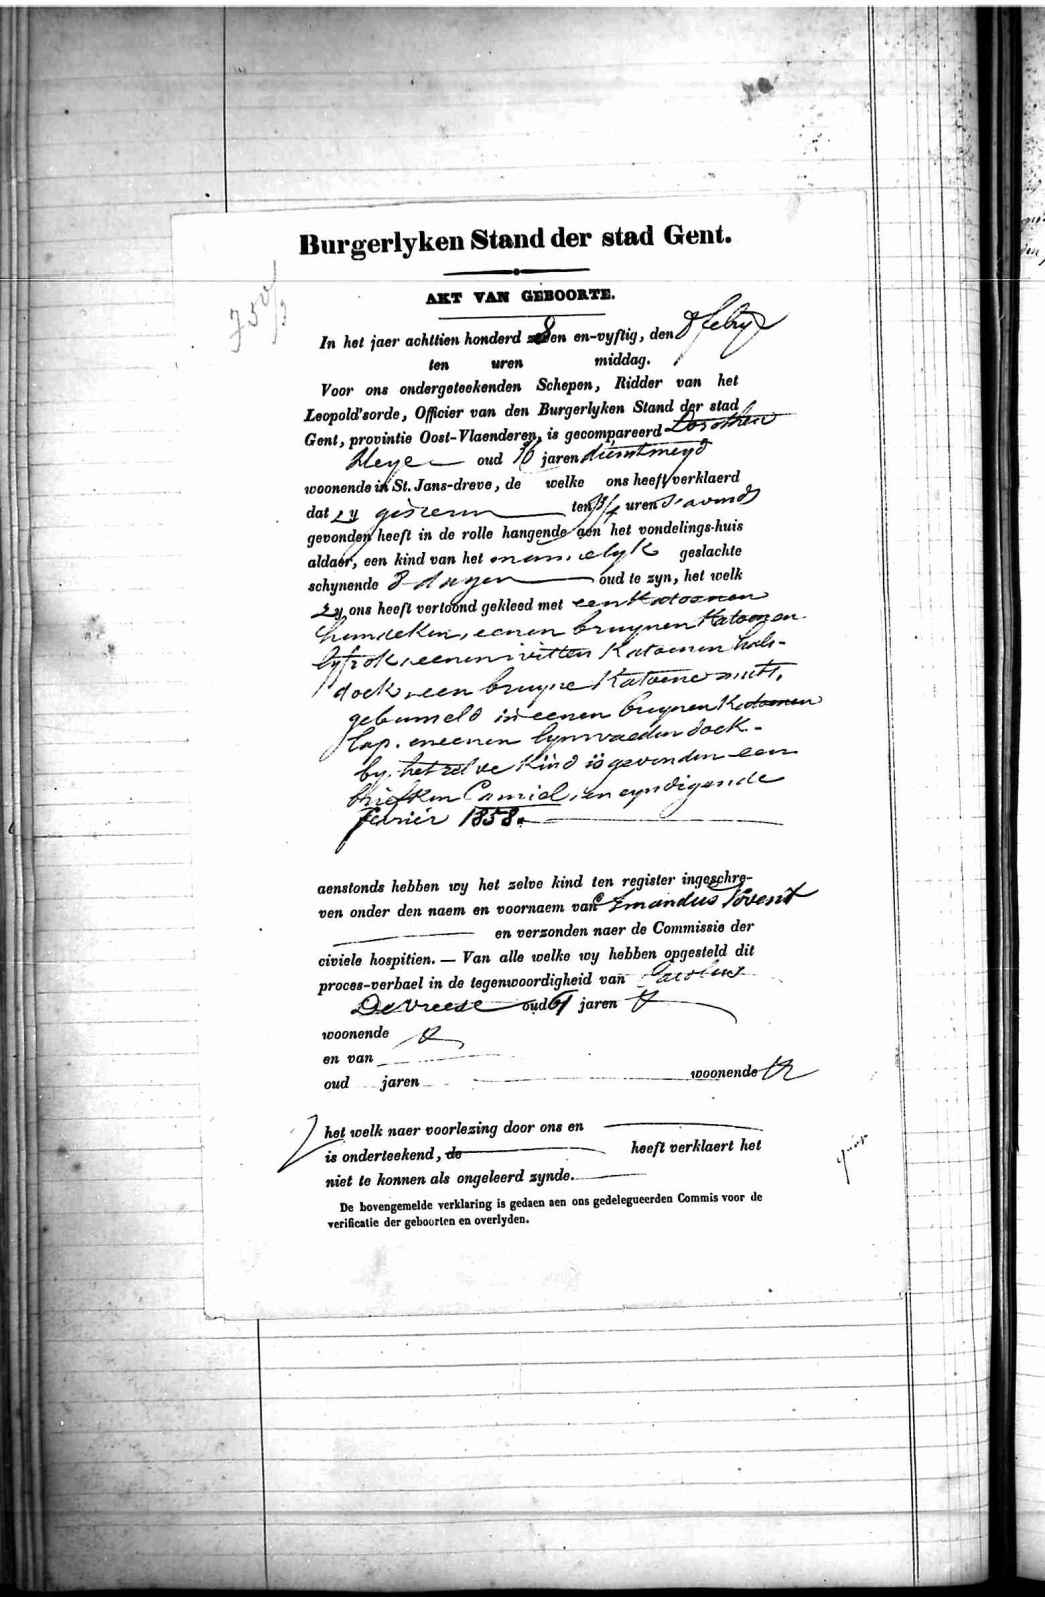 Burgerlyken Stand der stad Gent.
AKT VAN GEBOORTE.
In het jaer achttien honderd en-vyftig, den 8 febry
ten uren middag.
Voor ons ondergeteekenden Schepen, Ridder van het
Leopold'sorde, Officier van den Burgerlyken Stand der stad
Gent, provintie Oost-Vlaenderen, is gecompareerd Dorothea
oud jaren dienstmeyd
woonende in St. Jans-dreve, de welke ons heeft verklaerd
dat zy gisteren ten uren s'avonds
gevonden heeft in de rolle hangende aen het vondelings-huis
aldaer, een kind van het mannelyk geslachte
schynende 8 dagen oud te zyn, het welk
zy ons heeft vertoond gekleed met een Katoenen
hemdeken, eenen bruynen Katoenen
lyfrok, eenen witten Katoenen hals-
doek, een bruyne Katoene muts,
gebunseld in eenen bruynen Katoenen
lap, en eenen lynwaeden doek -
by het zelve Kind is gevonden een
briefken Camiel, en eyndigende
fevrier 1858.
aenstonds hebben wy het zelve kind ten register ingeschre-
ven onder den naem en voornaem van
en verzonden naer de Commissie der
civiele hospitien. — Van alle welke wy hebben opgesteld dit
proces-verbael in de tegenwoordigheid van Carolus
De Vreese oud 61 jaren
woonende
en van
oud jaren woonende
het welk naer voorlezing door ons en
is onderteekend, de heeft verklaert het
niet te konnen als ongeleerd zynde.
De bovengemelde verklaring is gedaen aen ons gedelegueerden Commis voor de
verificatie der geboorten en overlyden.